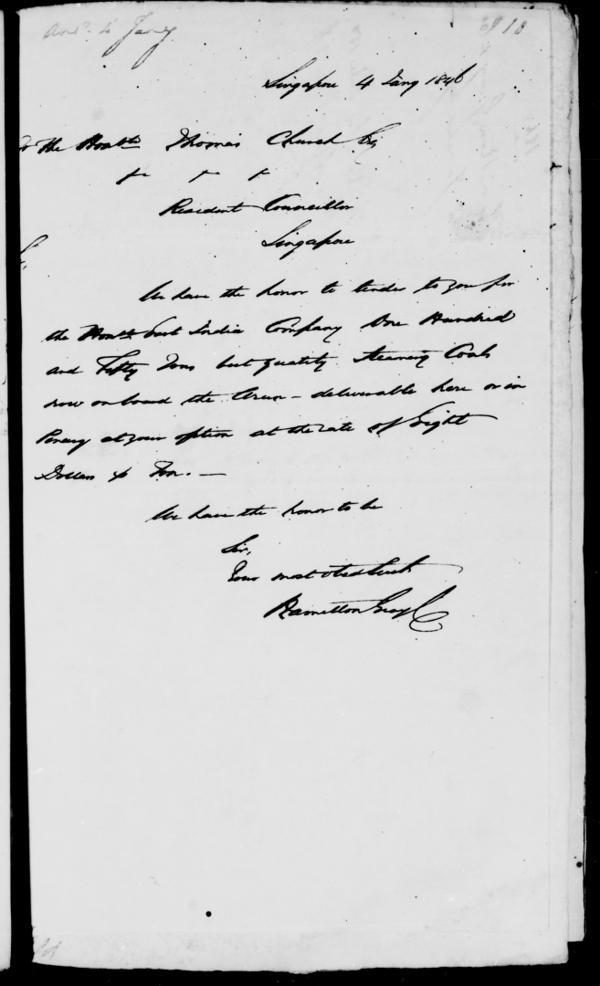 Ansd. 4 Jany
Singapore 4 Jany 1846
To The Honble Thomas Church Esq
Resident Councillor
Singapore
Sir,
We have the honor to tender to you for
the Honble East India Company One Hundred
and Fifty Tons best quality Steaming Coals
now on board the — deliverable here or in
Penang at your option at the rate of Eight
Dollars ⅌ Ton. —
We have the honor to be
Sir,
Your most obed Servts
Hamilton Gray & Co